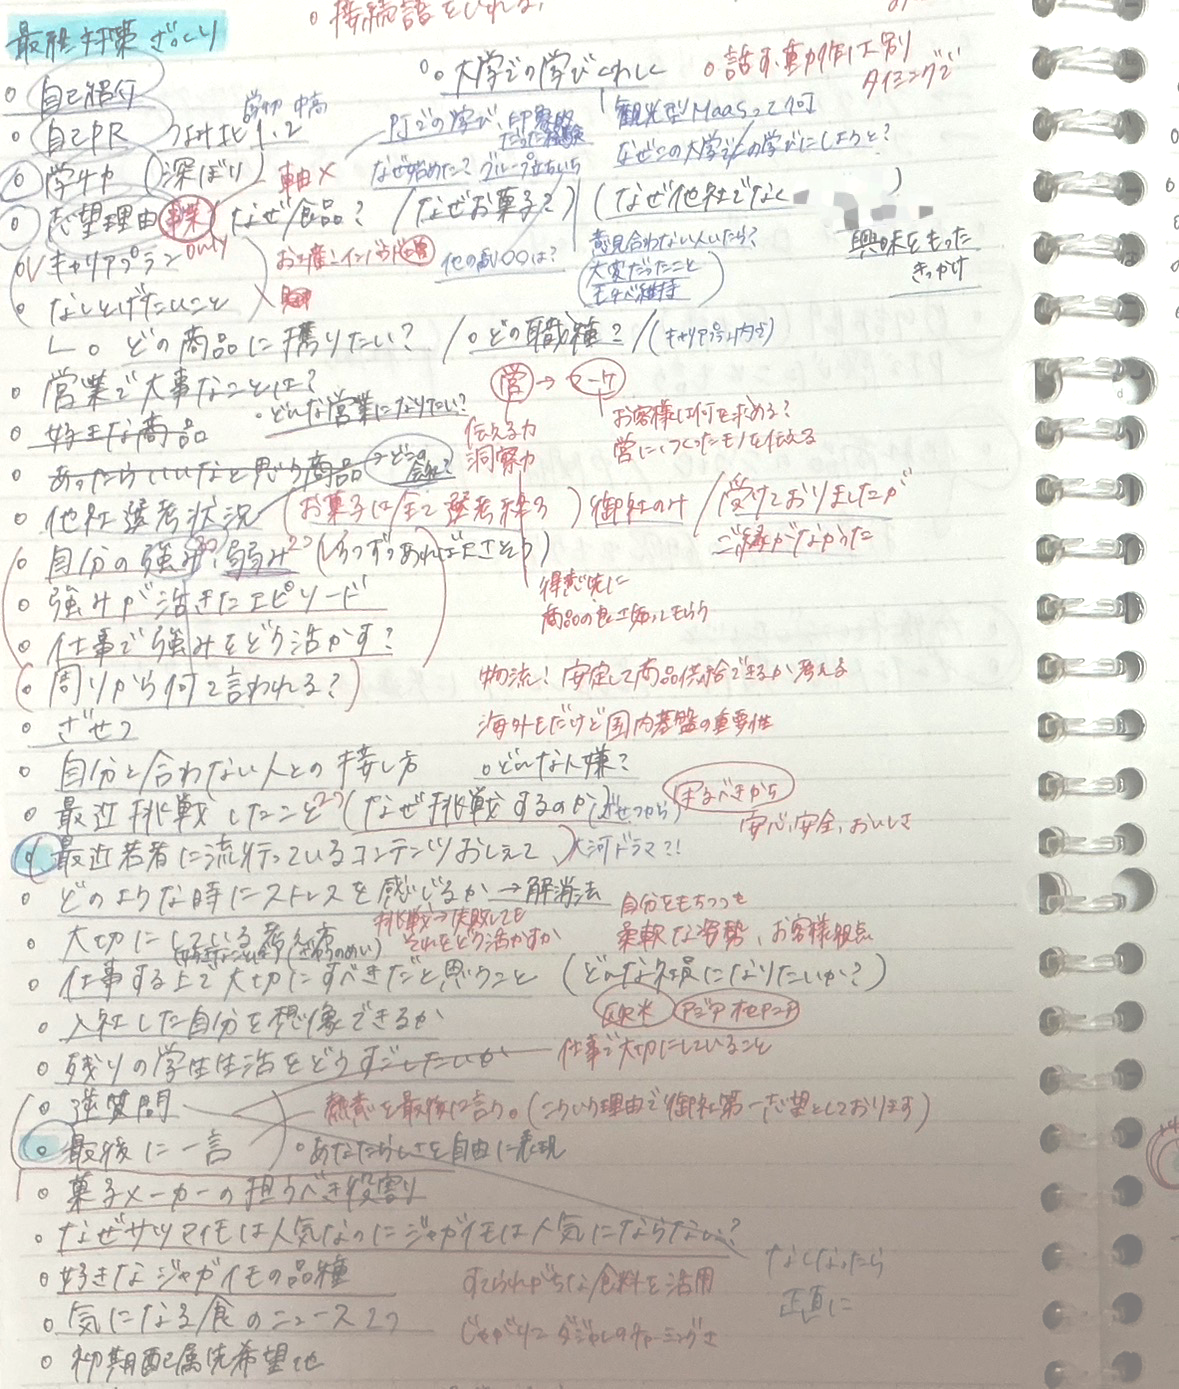 。接続語をいれる、
最終対策 ざっくり
。大学での学びくわしく
。話す、動作は別
タイミングで
。自己紹介
。自己PR つみ北 1、2
学物 中高
PJでの学び、印象的だった経験
観光型MaaSって何
。学チカ (深ぼり)
軸×
なぜ始めた? グループ立ちいち
なぜこの大学での学びにしようと?
。志望理由 事業 なぜ食品? / なぜお菓子?) (なぜ他社でなく )
only
。キャリアプラン
お土産、インバウンド
他の高いOOは?
意見合わない人いたら?
大変だったこと
モチベ維持
興味をもった
きっかけ
。なしとげたいこと
。どの商品に携りたい? / 。どの職種? / (キャリアプラン内容)
。営業で大事なことは?
。どんな営業になりたい?
営→マーケ
。好きな商品
伝える力
洞察力
お客様は何を求める?
営につくったモノを伝える
。あったらいいなと思う商品→どこの会社?
。他社選考状況 (お菓子は全て選考終る) 御社のみ / 受けておりましたが
ご縁がなかった
。自分の強み、弱み (1つずつあれば大さそう)
。強みが活きたエピソード
得意先に
商品の良さ知ってもらう
。仕事で強みをどう活かす?
(。周りから何て言われる?)
物流! 安定して商品供給できるか考える
。ざせつ
海外もだけど国内基盤の重要性
。自分と合わない人との接し方 。どんな人嫌?
。最近挑戦したこと2つ (なぜ挑戦するのか) (ざせつから)
まるべきから
安心、安全、おいしさ
。最近若者に流行っているコンテンツおしえて、大河ドラマ?!
。どのような時にストレスを感じるか→解消法
挑戦→失敗しても
それをどう活かすか
自分をもちつつも
柔軟な姿勢、お客様視点
。大切にしている
。仕事する上で大切にすべきだと思うこと (どんな社員になりたいか?)
。入社した自分を想像できるか
欧米 アジア
。残りの学生生活をどうすごしたいか
仕事で大切にしていること
。逆質問
熱意を最後に言う。(こういう理由で御社第一志望としております)
。最後に一言 。あなたらしさを自由に表現
。菓子メーカーの担うべき役割り
。なぜサツマイモは人気なのにジャガイモは人気にならない?
。好きなジャガイモの品種
すてられがちな食料を活用
なくなったら
正直に
。気になる食のニュース2つ
じゃがりこ ダジャレのチャーミングさ
。初期配属先希望地